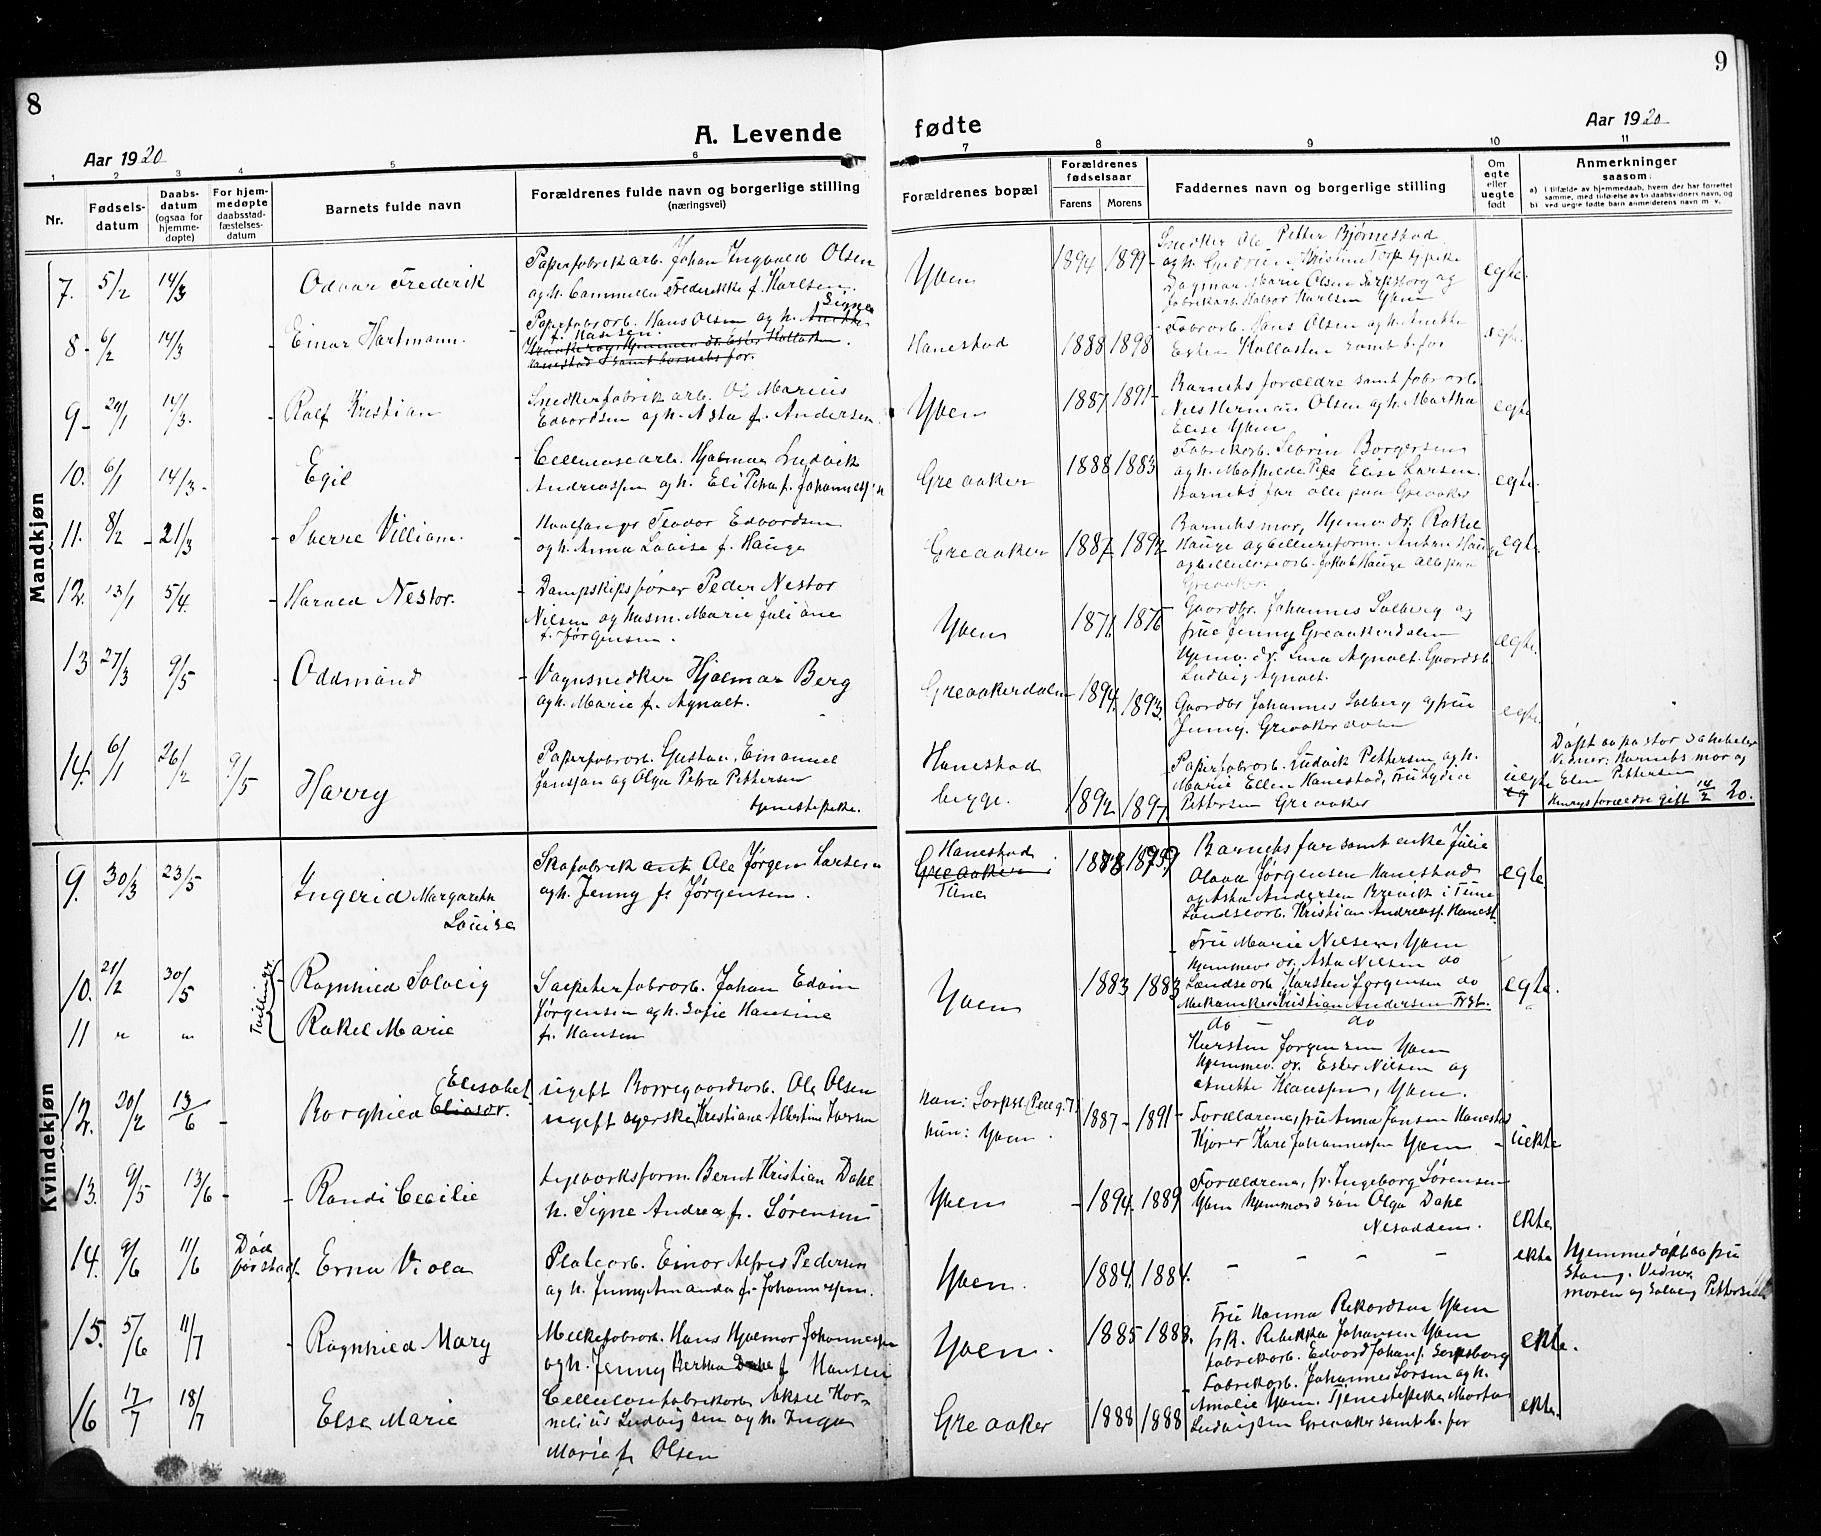 8
9
A. Levende fødte
Aar 1920
Aar 1920
1 2 3 4 5 6 7 8 9 10 11
Nr.
Fødsels-
datum
Daabs-
datum
(ogsaa for
hjemme-
døpte)
For hjem-
medøpte
daabsstad-
fæstelses-
datum
Barnets fulde navn
Forældrenes fulde navn og borgerlige stilling
(næringsvei)
Forældrenes bopæl
Forældrenes
fødselsaar
Farens Morens
Faddernes navn og borgerlige stilling
Om
egte
eller
uegte
født
Anmerkninger
saasom:
a) i tilfælde av hjemmedaab, hvem der har forrettet
samme, med tilføielse av to daabsvidners navn, og
b) ved uegte fødte barn anmelderens navn m. v.
Mandkjøn
7. 5/2 14/3 Odvar Frederik
Papirfabrikarb. Johan Ingvald Olsen
og h. Cammilla Frederikke f. Karlsen.
Yven 1894 1899
Snedker Ole Petter Bjørnestad
Dagmar Marie Olsen Sarpsborg og
fabrikarb. Halvor Karlsen Yven
egte.
8 6/2 14/3 Einar Hartmann.
Papirfabrarb. Hans Olsen og h. Signe
f. Hansen.
Hanestad 1888 1898
Fabrarb. Hans Olsen og h. Anette
samt b. far
egte.
9 29/1 14/3. Ralf Kristian
Snedkerfabrikarb. Ole Marius
Edvardsen og h. Asta f. Andersen
Yven 1887 1891
Barnets forældre samt fabrarb.
Nils Herman Olsen og h. Martha
Elise Yven
egte
10. 6/1 14/3 Egil
Cellulosearb. Hjalmar Ludvik
Andreassen og h. Eli Petra f. Johannessen
Greaaker 1888 1883
Fabrikarb. Severin Borgersen
og h. Mathilde Elise Larsen.
Barnets far alle paa Greaaker
egte.
11. 8/2 21/3 Sverre Villiam.
Hvalfanger Teodor Edvardsen
og h. Anna Lovise f. Hauge
Greaaker 1887 1892
Barnets mor, Hjemv. dr. Rakel
Hauge og celluloseform. Anton Hauge
og cellulosearb. Jakob Hauge alle paa
Greaaker.
egte.
12. 13/1 5/4 Harald Nestor.
Dampskipsfører Peder Nestor
Nilsen og husm. Marie Juliane
f. Jørgensen.
Yven 1871. 1876
Gaardbr. Johannes Solberg og
frue Jenny Greaakerdalen
Hjemv. dr. Lina Agnalt. Gaardsb.
Ludvig Agnalt.
egte.
13 27/3 9/5 Oddmund
Vognsnedker Hjalmar Berg
og h. Marie f. Agnalt.
Greaakerdalen 1894. 1893.
Gaardbr Johannes Solberg og frue
Jenny. Greaakerdalen
egte.
14. 6/1 26/2 9/5 Harry
Papirfabrarb. Gustav Emanuel
Jansson og Olga Petra Pettersen
tjenestepike.
Hanestad
bygge.
1892 1897
Papirfabrarb. Ludvik Pettersen og h.
Marie Ellen Hanestad, Fru Lydia
Pettersen Greaaker
uegte
Døpt av pastor
Vidner: Barnets mor og
Elen Pettersen
forældre gift 14/2 20.
Kvindekjøn
9. 30/3 23/5 Ingerid Margarethe
Louise
Skofabrikarb. Ole Jørgen Larsen
og h. Jenny f. Jørgensen.
Hanestad
Greaaker
Tune
1878 1875
Barnets far samt enke Julie
Olava Jørgensen Hanestad
og Asta Andersen Brevik i Tune
Landsearb. Kristian Andreass. Hanest.
egte.
10. 21/2 30/5 Ragnhild Solveig
11 " " Rakel Marie
Tvillinger.
Salpeterfabrarb. Johan Edvin
Jørgensen og h. Sofie Hansine
f. Hansen
Yven 1883 1883
Fru Marie Nilsen, Yven
Hjemmev. dr. Asta Nilsen do
Landsearb. Karsten Jørgensen do
Mekaniker Kristian Andersen
do — do
Karsten Jørgensen Yven
Hjemmev. dr. Ester Nilsen og
Anette Klaussen, Yven.
egte.
12. 20/2 13/6 Borghild Elisabet
ugift Borregaardsarb. Ole Olsen
ugift syerske Kristiane Albertine Iversen
Han: Sarpsb.
Hun: Yven.
1887 1891
Forældrene, fru Anna Jansen Hanestad
Kjører Karl Johannessen Yven
uekte
13. 9/5 13/6 Randi Cecilie
Bernt Kristian Dahl
h. Signe Andrea f. Sørensen
Yven 1894. 1889
Forældrene, fr. Ingeborg Sørensen
Yven Olga Dahl
Nesodden.
ekte.
14. 9/6 11/6 Død
før stadf. Erna Viola
Platearb. Einar Alfred Pedersen
og h. Jenny Amanda f. Johannessen.
Yven. 1884. 1884.
— — — —
ekte
Hjemmedøpt av fru
Stang. Vidner
moren og Solveig Pettersen
15. 5/6 11/7 Ragnhild Mary
Melkefabrarb. Hans Hjalmar Johannessen
og h. Jenny Bertha f. Hansen
Yven. 1885 1888.
Fru Hanna Rekordsen Yven
frk. Rebekka Johansen Yven
fabrikarb. Edvard Johans. Sarpsborg
ekte.
16 17/7 18/7 Else Marie
Cellulosefabrikarb. Aksel Kor-
nelius Ludvigsen og h. Inga
Marie f. Olsen
Greaaker 1888 1888
Fabrikarb. Johannes Larsen og h.
Amalie Yven. Tjenestepike Marta
Ludvigsen Greaaker samt b. far
ekte.